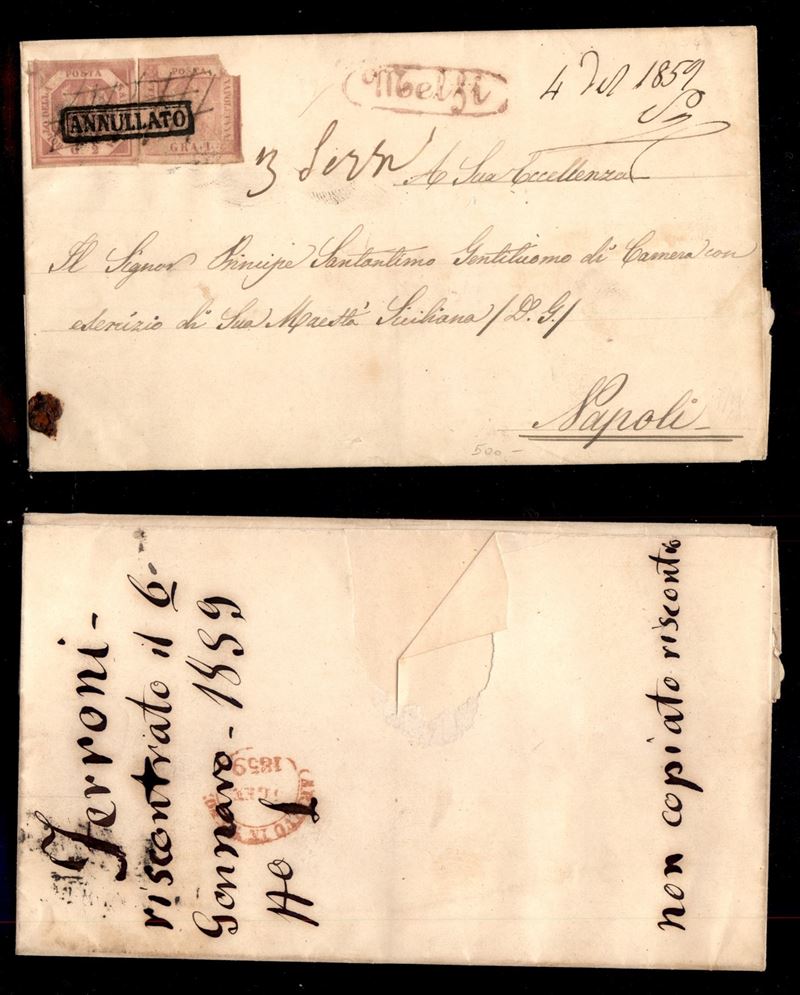 POSTA
POSTA
ANNULLATO
G. 2
GRA. 1
Melfi
4 del 1859
A Sua Eccellenza
Il Signor Principe Santantimo Gentiluomo di Camera con
esercizio di Sua Maestà Siciliana / D. G. /
Napoli
500.-
Ferroni -
riscontrato il 6.
Gennaro - 1859
No 1
1859
non copiato riscontro